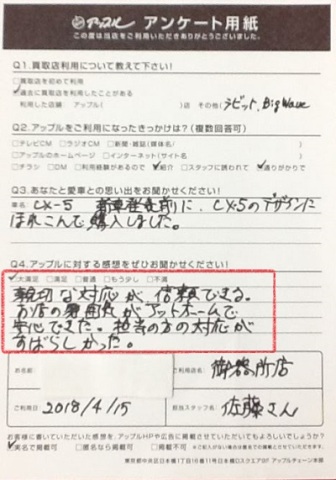 アップル アンケート用紙
この度は当店をご利用いただきありがとうございました。
Q1.買取店利用について教えて下さい!
買取店を初めて利用
過去に買取店を利用したことがある
利用した店舗 アップル( )店 その他(ラビット,Big Wave
Q2.アップルをご利用になったきっかけは?(複数回答可)
テレビCM ラジオCM 新聞・雑誌(媒体名: )
アップルのホームページ インターネット(サイト名 )
チラシ DM 利用経験があるので 紹介 スタッフに誘われて 通りがかりで
Q3.あなたと愛車との思い出をお聞かせください!
車名 CX-5
に、CX-5のデザインに
ほれこんで購入しました。
Q4.アップルに対する感想をぜひお聞かせください!
大満足 満足 普通 もう少し 不満
親切な対応が信頼できる。
お店の雰囲気がアットホームで
安心できた。担当の方の対応が
すばらしかった。
お名前
ご利用店名: 御器所店
ご利用日 2018/4/15
担当スタッフ名 佐藤さん
お客様に書いていただいた感想を、アップルHPや広告に掲載させていただいてもよろしいでしょうか?
実名で掲載可 匿名なら掲載可 掲載不可